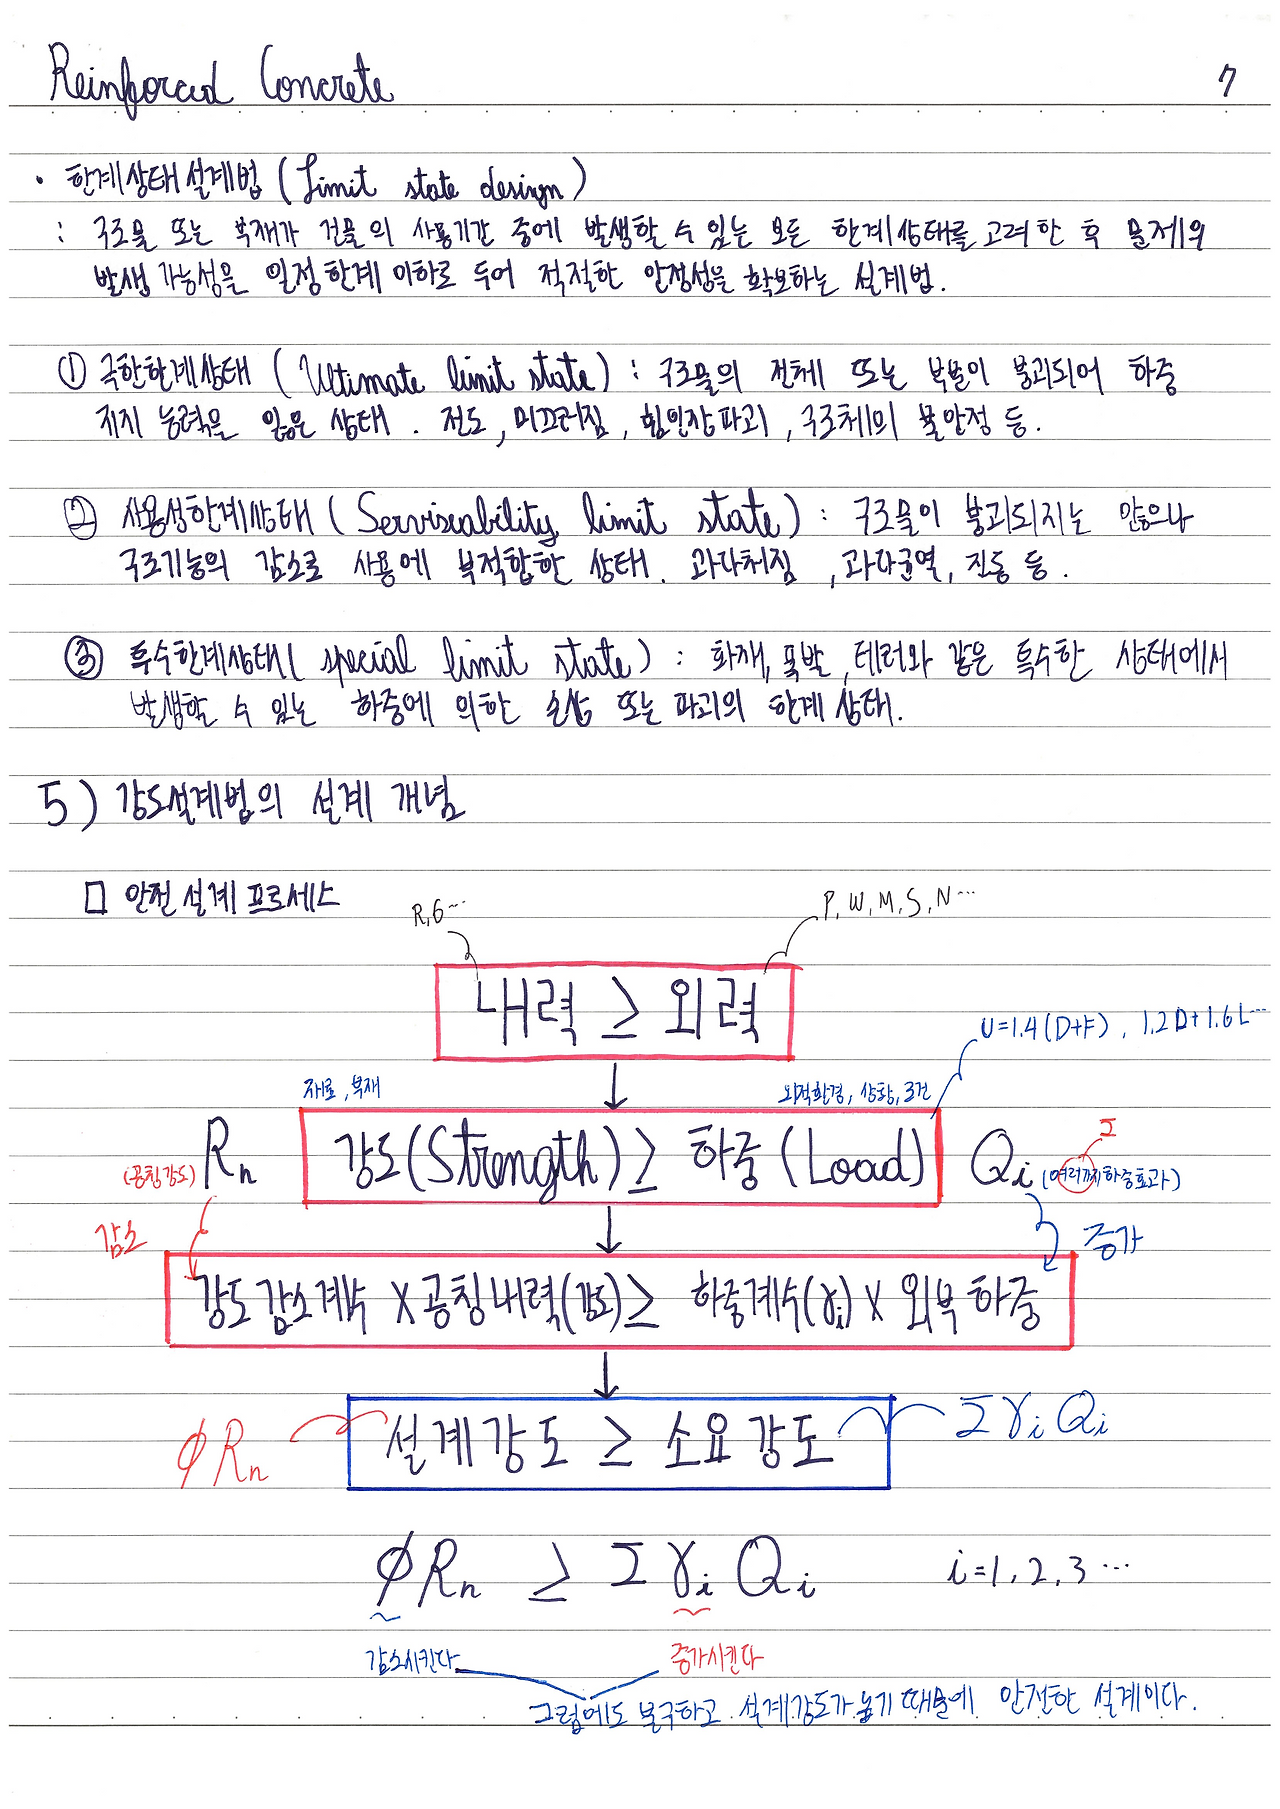 Reinforced Concrete
7
· 한계상태설계법 (Limit state design)
: 구조물 또는 부재가 건물의 사용기간 중에 발생할 수 있는 모든 한계상태를 고려한 후 문제의
발생 가능성을 일정한계 이하로 두어 적절한 안정성을 확보하는 설계법.
① 극한한계상태 (Ultimate limit state) : 구조물의 전체 또는 부분이 붕괴되어 하중
지지 능력을 잃은 상태. 전도, 미끄러짐, 휨인장파괴, 구조체의 불안정 등.
② 사용성한계상태 (Serviseability limit state) : 구조물이 붕괴되지는 않으나
구조기능의 감소로 사용에 부적합한 상태. 과다처짐, 과다균열, 진동 등.
③ 특수한계상태 (special limit state) : 화재, 폭발, 테러와 같은 특수한 상태에서
발생할 수 있는 하중에 의한 손상 또는 파괴의 한계 상태.
5) 강도설계법의 설계 개념
□ 안전 설계 프로세스
R, 6 ···
P, W, M, S, N ···
내력 ≥ 외력
U=1.4(D+F), 1.2D+1.6L ···
재료, 부재
외적환경, 상황, 조건
Rn
(공칭강도)
강도(Strength) ≥ 하중 (Load)
Qi (여러가지하중효과)
Σ
감소
증가
강도감소계수 X 공칭내력(강도) ≥ 하중계수(γi) X 외부하중
ϕRn
설계강도 ≥ 소요강도
Σ γi Qi
ϕRn ≥ Σ γi Qi
i=1, 2, 3 ···
감소시킨다
증가시킨다
그럼에도 불구하고 설계강도가 높기 때문에 안전한 설계이다.